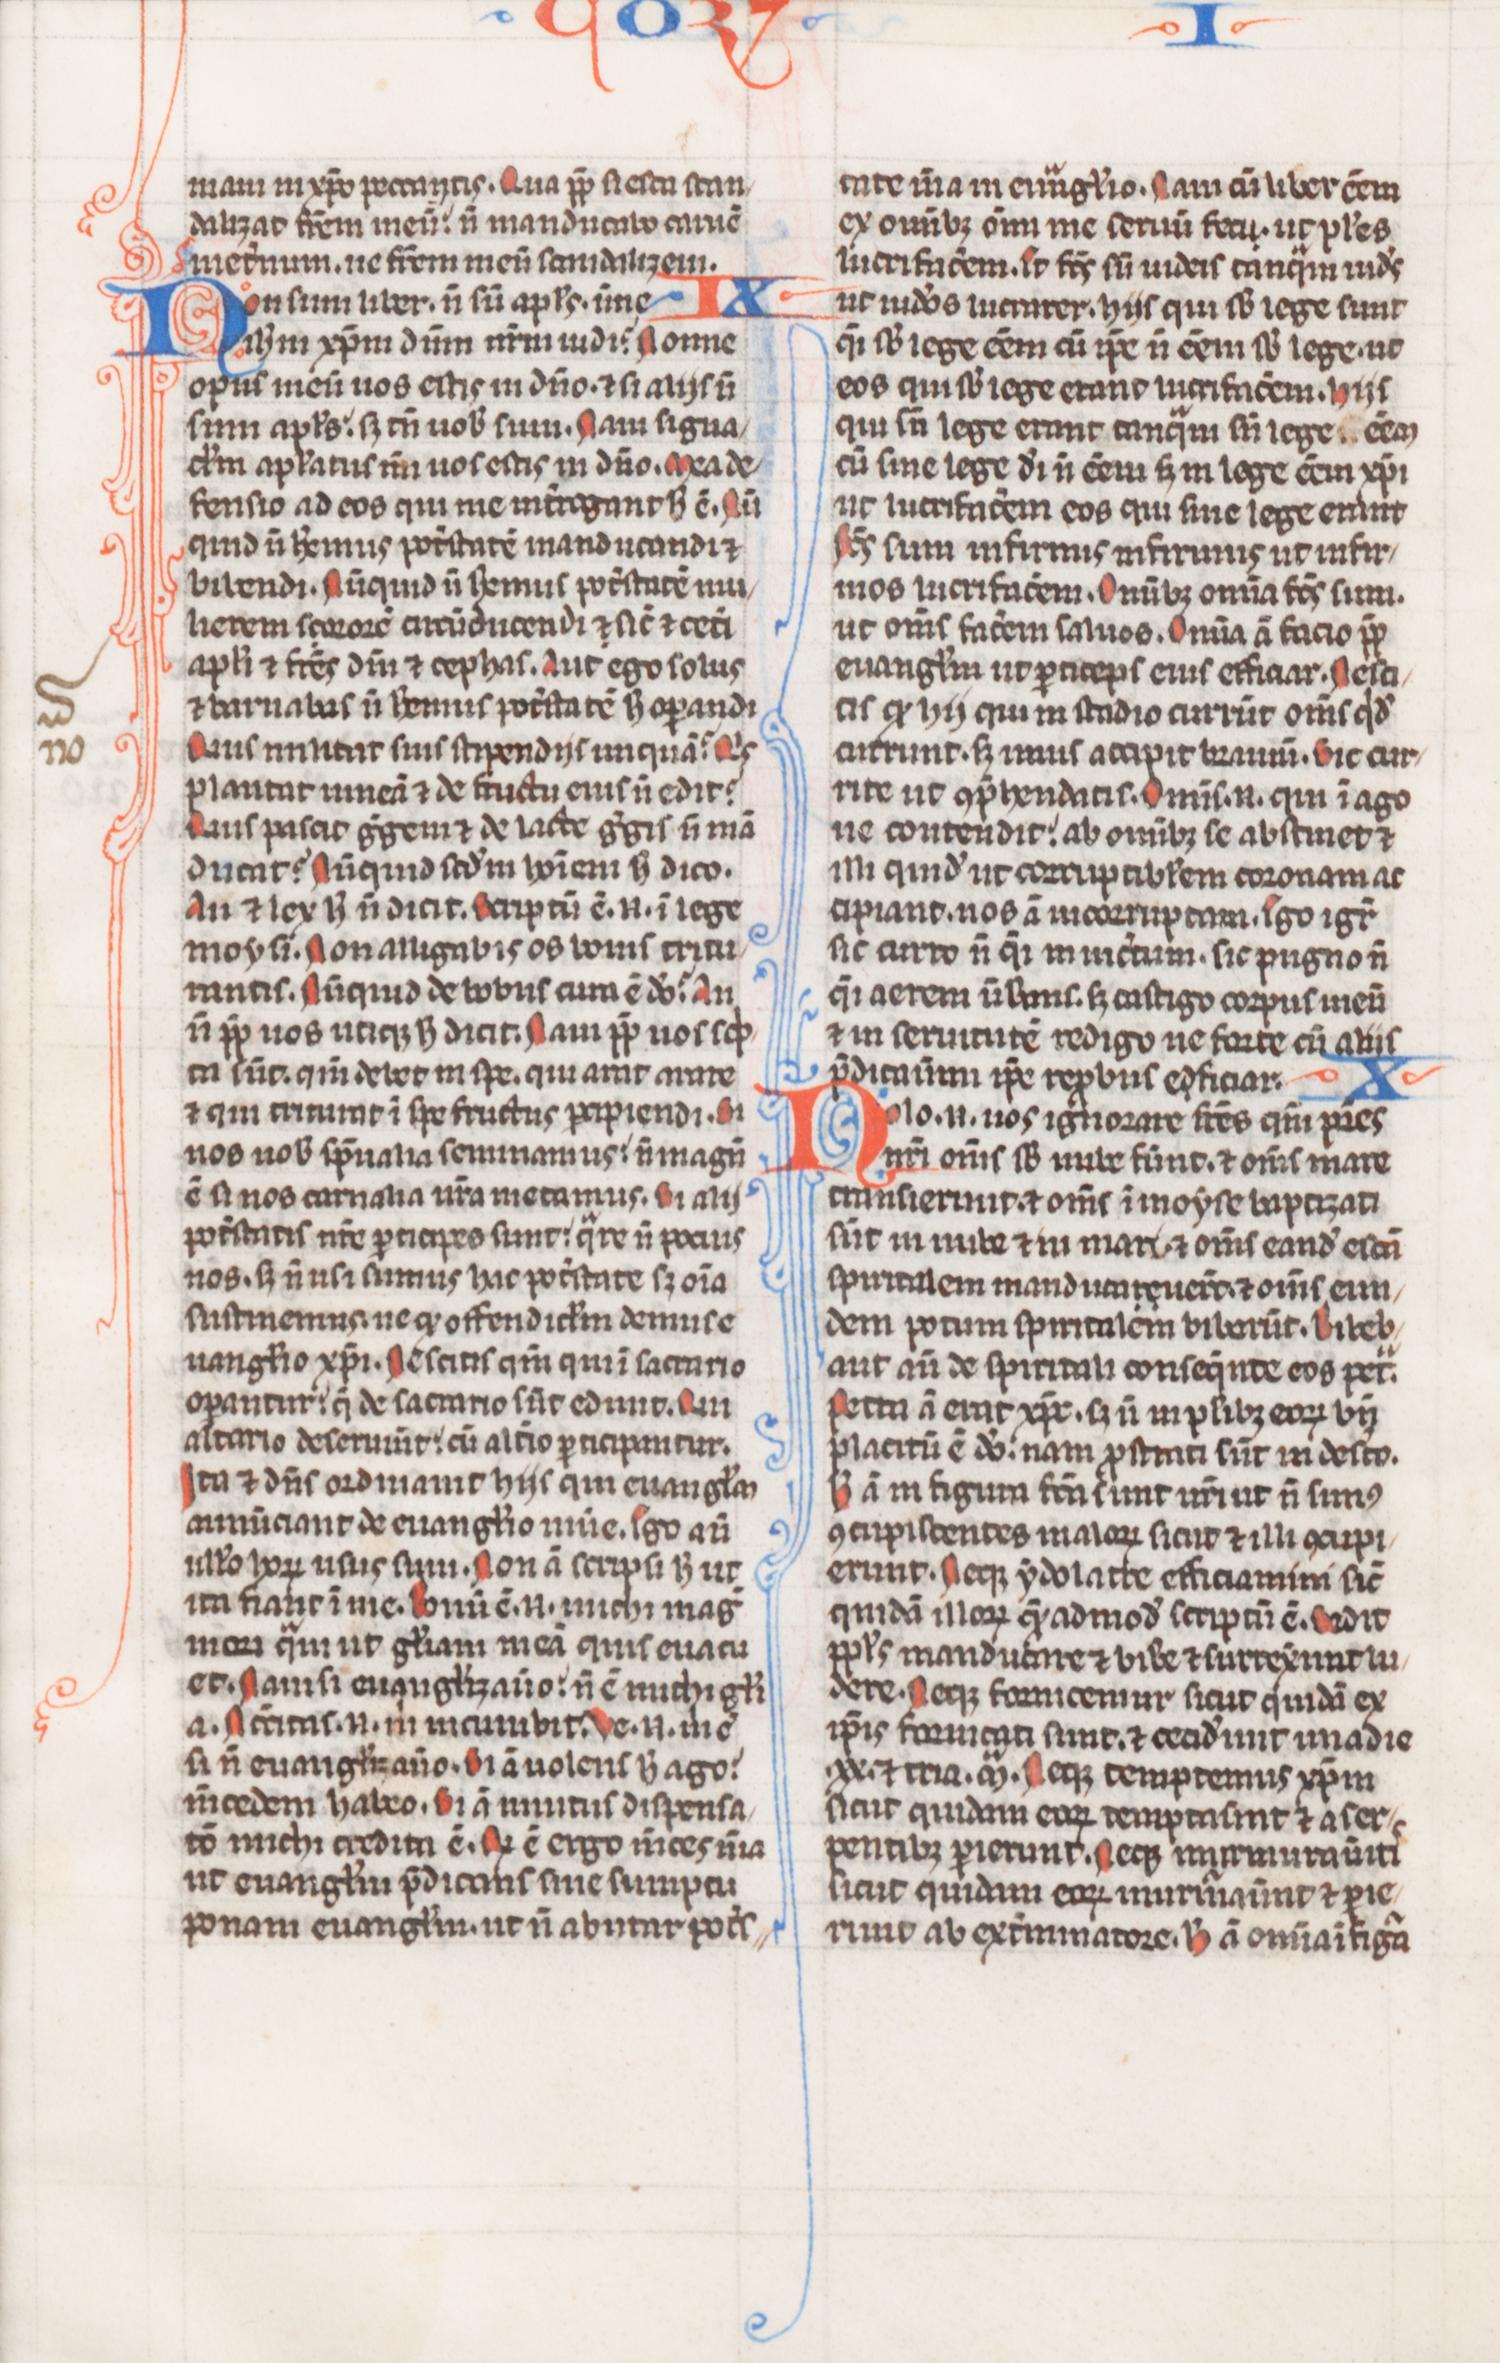 qoꝝ
I
mam in xp̄o peccantis. Qua pp̄ si esca scan
dalizat fr̄em meū: n̄ manducabo carnē
in et̄num. ne fr̄em meū scandalizem.
Non sum liber. n̄ sū apl̄s. n̄ne IX
ih̄m xp̄m dūm nr̄m uidi? Nonne
opus meū uos estis in dn̄o. ⁊ si alijs n̄
sum apl̄s: sꝫ tn̄ uob̄ sum. Nam signa
cl̄m apl̄atus mi uos estis in dn̄o. Mea de
fensio ad eos qui me int̄rogant h̄ ē. Nū
quid n̄ hēmus potestatē manducandi ⁊
bibendi. Nūquid n̄ hēmus potestatē mu
lierem sororē circūducendi sic̄ ⁊ cet̄i
apl̄i ⁊ fr̄es dn̄i ⁊ cephas. Aut ego solus
⁊ barnabas n̄ hēmus potestatē h̄ oꝑandi
Quis militat suis stipendijs unquā? Qͥs
plantat uineā ⁊ de fructu eius n̄ edit?
Quis pascit gͤgem ⁊ de lacte gͤgis n̄ mā
ducat? Nūquid scd̄m hoīem h̄ dico.
An ⁊ lex h̄ n̄ dicit. Scriptū ē. n. ī lege
moysi. Non alligabis os boui tritu
rantis. Nūquid de bobus cura ē do? An
n̄ pp̄ uos utiqꝫ h̄ dicit. Nam pp̄ nos scͥp
ta sūt. qm̄ debet in spe. qui arat arare
⁊ qui triturat ī spe fructus ꝑcipiendi. Si
nos uob̄ sp̄ualia seminamus: n̄ magn̄
ē si nos carnalia ur̄a metamus. Si alij
potestatis nr̄e ꝑticipes sunt: qͣre n̄ pocius
nos. sꝫ n̄ usi sumus hac potestate sꝫ oīa
sustinemus. ne qͦ offendicl̄m demus e
uangl̄io xp̄i. Nescitis qm̄ qui ī sacrario
oꝑantur: q̄ de sacrario sūt edunt. Qui
altario deseruiūt: cū alt̄io ꝑticipantur.
Ita ⁊ dn̄s ordinauit hijs qui euangl̄m
annūciant de euangl̄io uiūe. Ego aū
ullo hoꝝ usus sum. Non ā scripsi h̄ ut
ita fiant ī me. Bonū ē. n. michi maḡ
mori qͣm ut gl̄iam meā quis euacu
et. Nam si euangl̄izauo: n̄ ē michi gl̄i
a. Necc̄itas. n. m̄ incumbit. Ve. n. m ē
si n̄ euangl̄izauo. Si ā uolens h̄ ago:
m̄cedem habeo. Si ā inuitus dispensa
tō michi credita ē. Q̄ ē ergo m̄ces m̄a
ut euangl̄m p̄dicans sine sumptu
ponam euangl̄m. ut n̄ abutar potes
no
tate m̄a in euangl̄io. Nam cū liber ēem
ex omībꝫ om̄i me seruū feci. ut pl̄es
lucrifac̄em. Et fc̄s sū iudeis tanqͣm iud̄s
ut iud̄os lucrarer. hijs qui sb̄ lege sunt
qͣi sb̄ lege ēem cū ip̄e n̄ ēem sb̄ lege. ut
eos qui sb̄ lege erant lucrifac̄em. hijs
qui sn̄ lege erant tanqͣm sn̄ lege ēem
cū sine lege dī n̄ ēem sꝫ in lege ēem xp̄i
ut lucrifac̄em eos qui sine lege erant
Fc̄s sum infirmis infirmus ut infir
mos lucrifac̄em. Omībꝫ omīa fc̄s sum.
ut om̄s fac̄em saluos. Omīa ā facio pp̄
euangl̄m ut ꝑticeps eius efficiar. Nesci
tis qͦ hij qui in stadio currūt om̄s qͥd̄
currunt. sꝫ unus accipit brauiū. Sic cur
rite ut ꝯp̄hendatis. Omīs. n. qui ī ago
ne contendit: ab omībꝫ se abstinet ⁊
illi quid̄ ut corruptibl̄em coronam ac
cipiant. nos ā incorruptam. Ego igr̄
sic curro n̄ qͣi in inc̄tum. sic pugno n̄
qͣi aerem ūbans. sꝫ castigo corpus meū
⁊ in seruitutē redigo ne forte cū alijs
p̄dicauīm ip̄e rep̄bus efficiar. X
Nolo. n. uos ignorare fr̄es qm̄ pr̄es
nr̄i om̄s sb̄ nube fūnt. ⁊ om̄s mare
transierunt. ⁊ om̄s ī moyse baptizati
sūt in nube ⁊ in mari. ⁊ om̄s eand̄ escā
spiritalem manducauert. ⁊ om̄s eun
dem potum spiritalem biberūt. Bibeb
ant aū de spiritali conseq̄nte eos pet̄.
Petra ā erat xp̄c. sꝫ n̄ in plībꝫ eoꝝ bn̄
placitū ē do: nam ꝓstrati sūt in desto.
h̄ ā in figura fc̄a sunt nr̄i ut n̄ simꝰ
ꝯcupiscentes maloꝝ sicut ⁊ illi ꝯcupi
erunt. Neqꝫ ydolatre efficiamini sic̄
quidā illoꝝ qͣ admod̄ scriptū ē. Sedit
ppl̄s manducare ⁊ bibe ⁊ surrexunt lu
dere. Neqꝫ fornicemur sicut quidā ex
ip̄is fornicati sunt. ⁊ cecid̄unt una die
.xx. ⁊ tria. m̄. Neqꝫ temptemus xp̄m
sicut quidam eoꝝ temptarūt ⁊ a ser
pentibꝫ ꝑierunt. Neqꝫ murmurauīti
sicut quidam eoꝝ murm̄aūnt ⁊ ꝑie
runt ab ext̄minatore. h̄ ā omīa ī figͣ